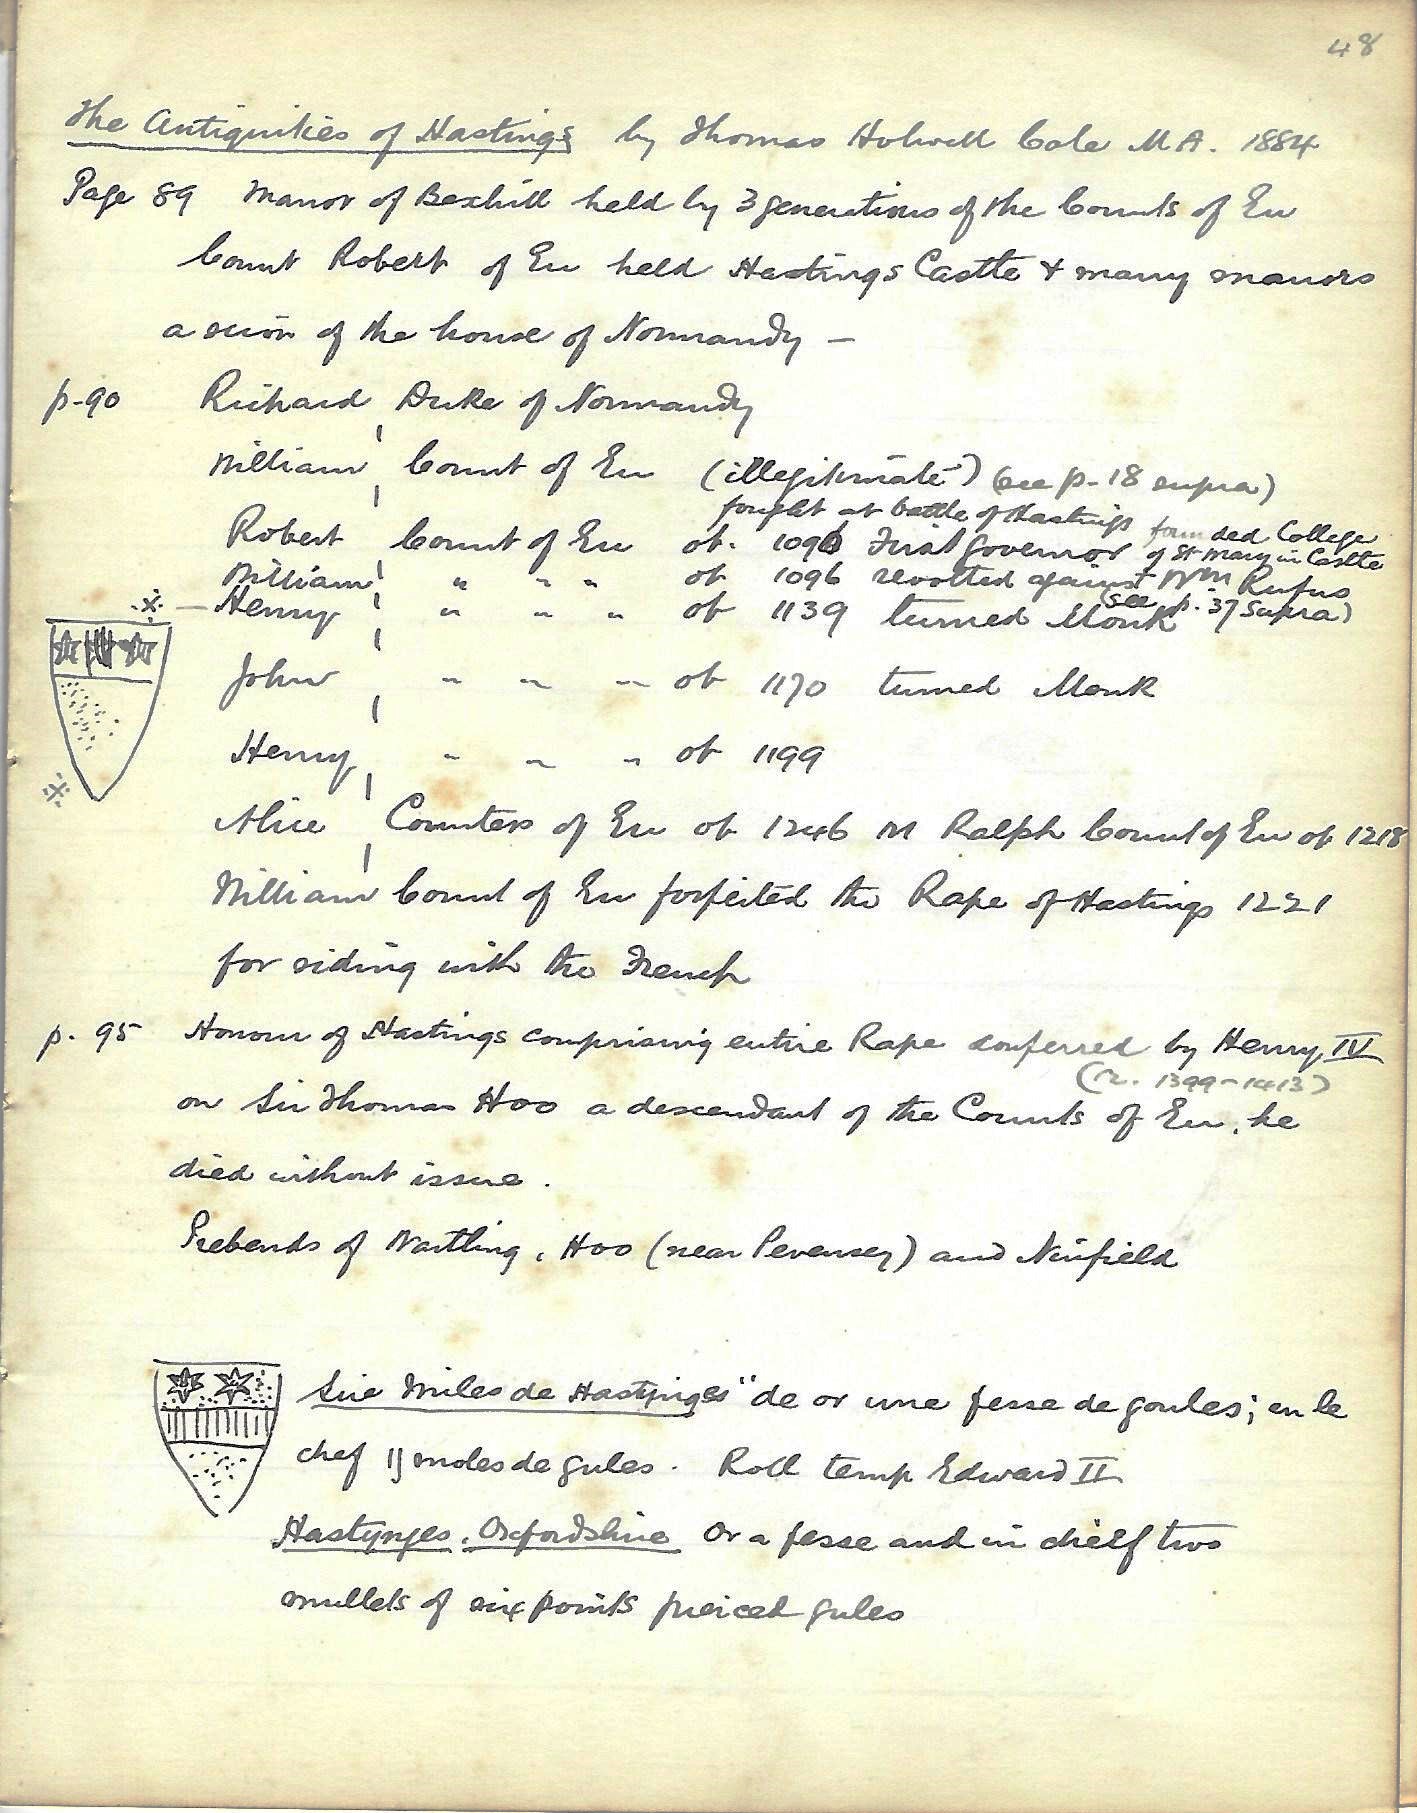 48
The Antiquities of Hastings by Thomas Holwell Cole M A. 1884
Page 89 Manor of Bexhill held by 3 generations of the Counts of Eu
Count Robert of Eu held Hastings Castle & many manors
a scion of the house of Normandy —
p-90 Richard, Duke of Normandy
William, Count of Eu (illegitimate) (see p-18 supra)
fought at battle of Hastings founded College
Robert Count of Eu ob. 1090 First Governor of St Mary in Castle
William " " " ob 1096 revolted against Wm Rufus
(see p. 37 supra)
※ — Henry " " " ob 1139 turned Monk
John " " " ob 1170 turned Monk
Henry " " " ob 1199
※
Alice Countess of Eu ob 1246 M Ralph Count of Eu ob 1218
William Count of Eu forfeited the Rape of Hastings 1221
for siding with the French
p. 95 Honour of Hastings comprising entire Rape conferred by Henry IV
(r. 1399-1413)
on Sir Thomas Hoo a descendant of the Counts of Eu, he
died without issue.
Prebends of Wartling, Hoo (near Pevensey) and Ninfield
Sire Miles de Hastynges "de or une fesse de goules; en le
chef ij moles de gules. Roll temp Edward II
Hastynges, Oxfordshire Or a fesse and in chielf two
mullets of six points pierced gules